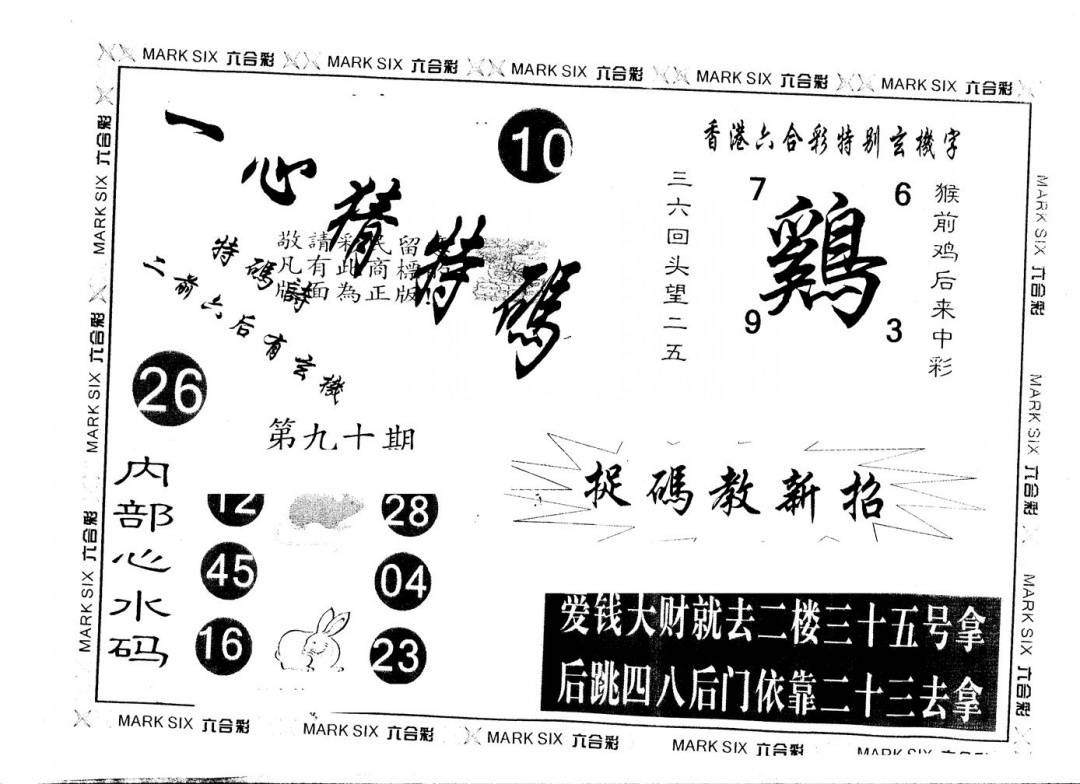 MARK SIX 六合彩 MARK SIX 六合彩 MARK SIX 六合彩 MARK SIX 六合彩 MARK SIX 六合彩
一心猜特碼
10
香港六合彩特别玄機字
三六回头望二五
7
6
鷄
9
3
猴前鸡后来中彩
敬請彩民留
凡有此商標
版面為正版!
特碼詩
二前六后有玄機
26
第九十期
内部心水码
12
28
45
04
16
23
捉碼教新招
爱钱大财就去二楼三十五号拿
后跳四八后门依靠二十三去拿
MARK SIX 六合彩
MARK SIX 六合彩
MARK SIX 六合彩
MARK SIX 六合彩
MARK SIX 六合彩
MARK SIX 六合彩
MARK SIX 六合彩 MARK SIX 六合彩 MARK SIX 六合彩 MARK SIX 六合彩